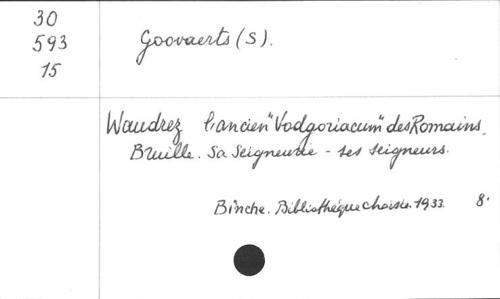 30
593
15
Goovaerts (S).
Waudrez l'ancien "Vodgoriacum" des Romains.
Bruille. Sa Seigneurie - ses seigneurs.
Binche. Bibliothéque choisie. 1933. 8°